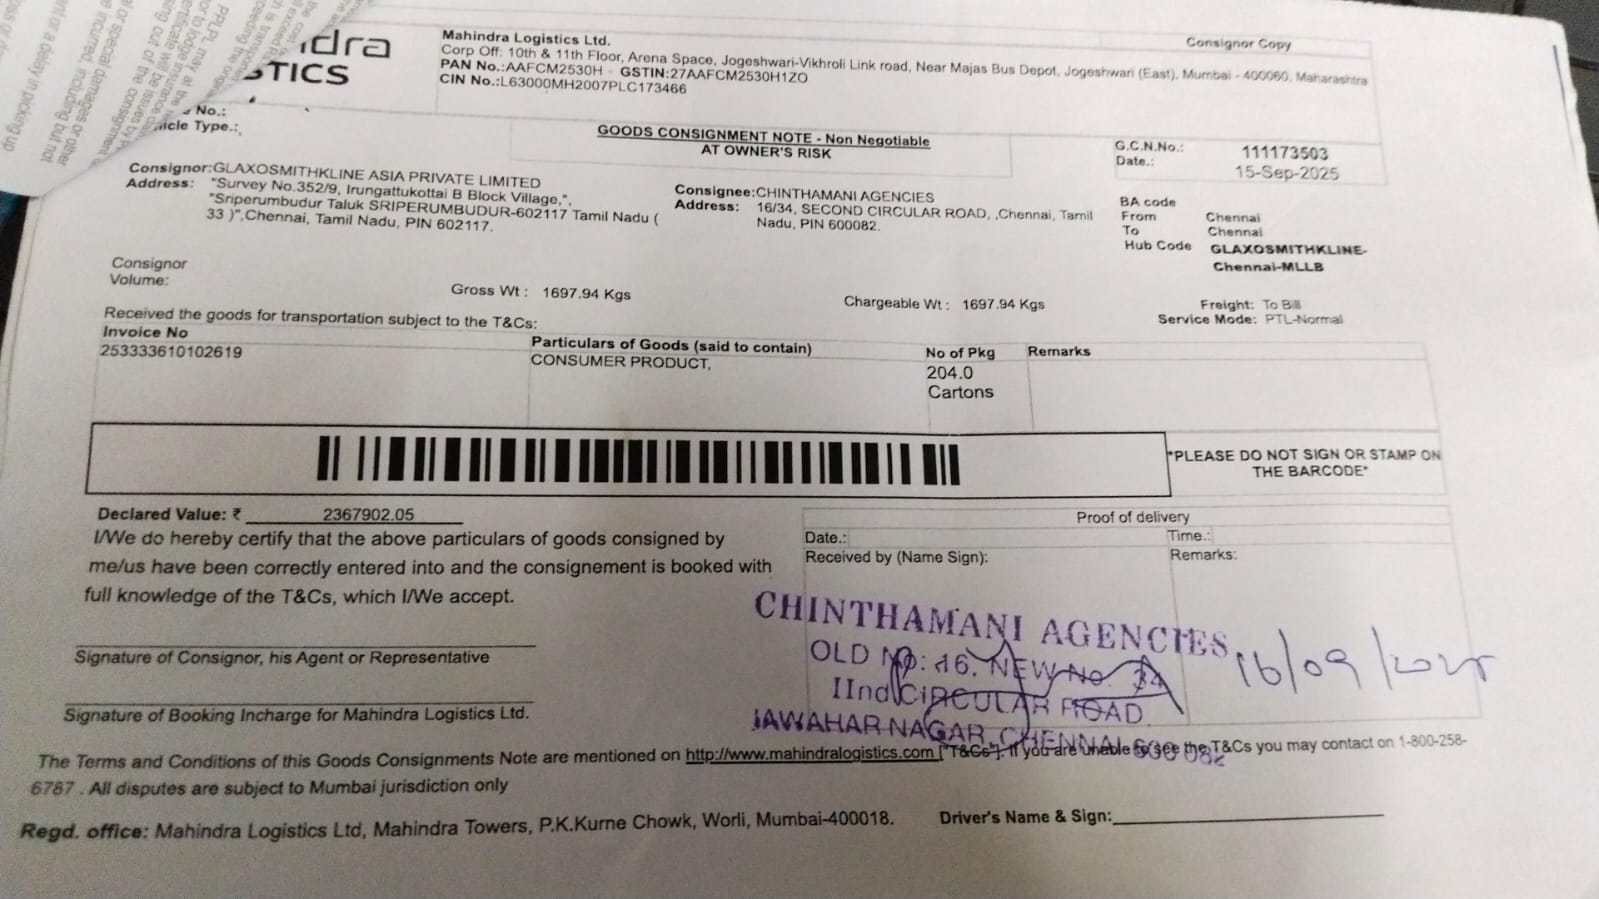 Mahindra Logistics Ltd.
Consignor Copy
Corp Off: 10th & 11th Floor, Arena Space, Jogeshwari-Vikhroli Link road, Near Majas Bus Depot, Jogeshwari (East), Mumbai - 400060, Maharashtra
PAN No.:AAFCM2530H - GSTIN:27AAFCM2530H1ZO
CIN No.:L63000MH2007PLC173466
dra
STICS
No.:
icle Type.:
GOODS CONSIGNMENT NOTE - Non Negotiable
AT OWNER'S RISK
G.C.N.No.: 111173503
Date.: 15-Sep-2025
Consignor:GLAXOSMITHKLINE ASIA PRIVATE LIMITED
Address: "Survey No.352/9, Irungattukottai B Block Village,",
"Sriperumbudur Taluk SRIPERUMBUDUR-602117 Tamil Nadu (
33 )",Chennai, Tamil Nadu, PIN 602117.
Consignee:CHINTHAMANI AGENCIES
Address: 16/34, SECOND CIRCULAR ROAD, ,Chennai, Tamil
Nadu, PIN 600082.
BA code
From Chennai
To Chennai
Hub Code GLAXOSMITHKLINE-
Chennai-MLLB
Consignor
Volume:
Gross Wt : 1697.94 Kgs
Chargeable Wt : 1697.94 Kgs
Freight: To Bill
Service Mode: PTL-Normal
Received the goods for transportation subject to the T&Cs:
Invoice No
253333610102619
Particulars of Goods (said to contain)
CONSUMER PRODUCT,
No of Pkg
204.0
Cartons
Remarks
*PLEASE DO NOT SIGN OR STAMP ON
THE BARCODE*
Declared Value: ₹ 2367902.05
I/We do hereby certify that the above particulars of goods consigned by
me/us have been correctly entered into and the consignement is booked with
full knowledge of the T&Cs, which I/We accept.
Proof of delivery
Date.:
Time.:
Received by (Name Sign):
Remarks:
CHINTHAMANI AGENCIES,
OLD No: 16, NEW No. 34
IInd CIRCULAR ROAD.
JAWAHAR NAGAR, CHENNAI-600 082
16/09/2025
Signature of Consignor, his Agent or Representative
Signature of Booking Incharge for Mahindra Logistics Ltd.
The Terms and Conditions of this Goods Consignments Note are mentioned on http://www.mahindralogistics.com ["T&Cs"]. If you are unable to see the T&Cs you may contact on 1-800-258-
6787 . All disputes are subject to Mumbai jurisdiction only
Regd. office: Mahindra Logistics Ltd, Mahindra Towers, P.K.Kurne Chowk, Worli, Mumbai-400018.
Driver's Name & Sign: